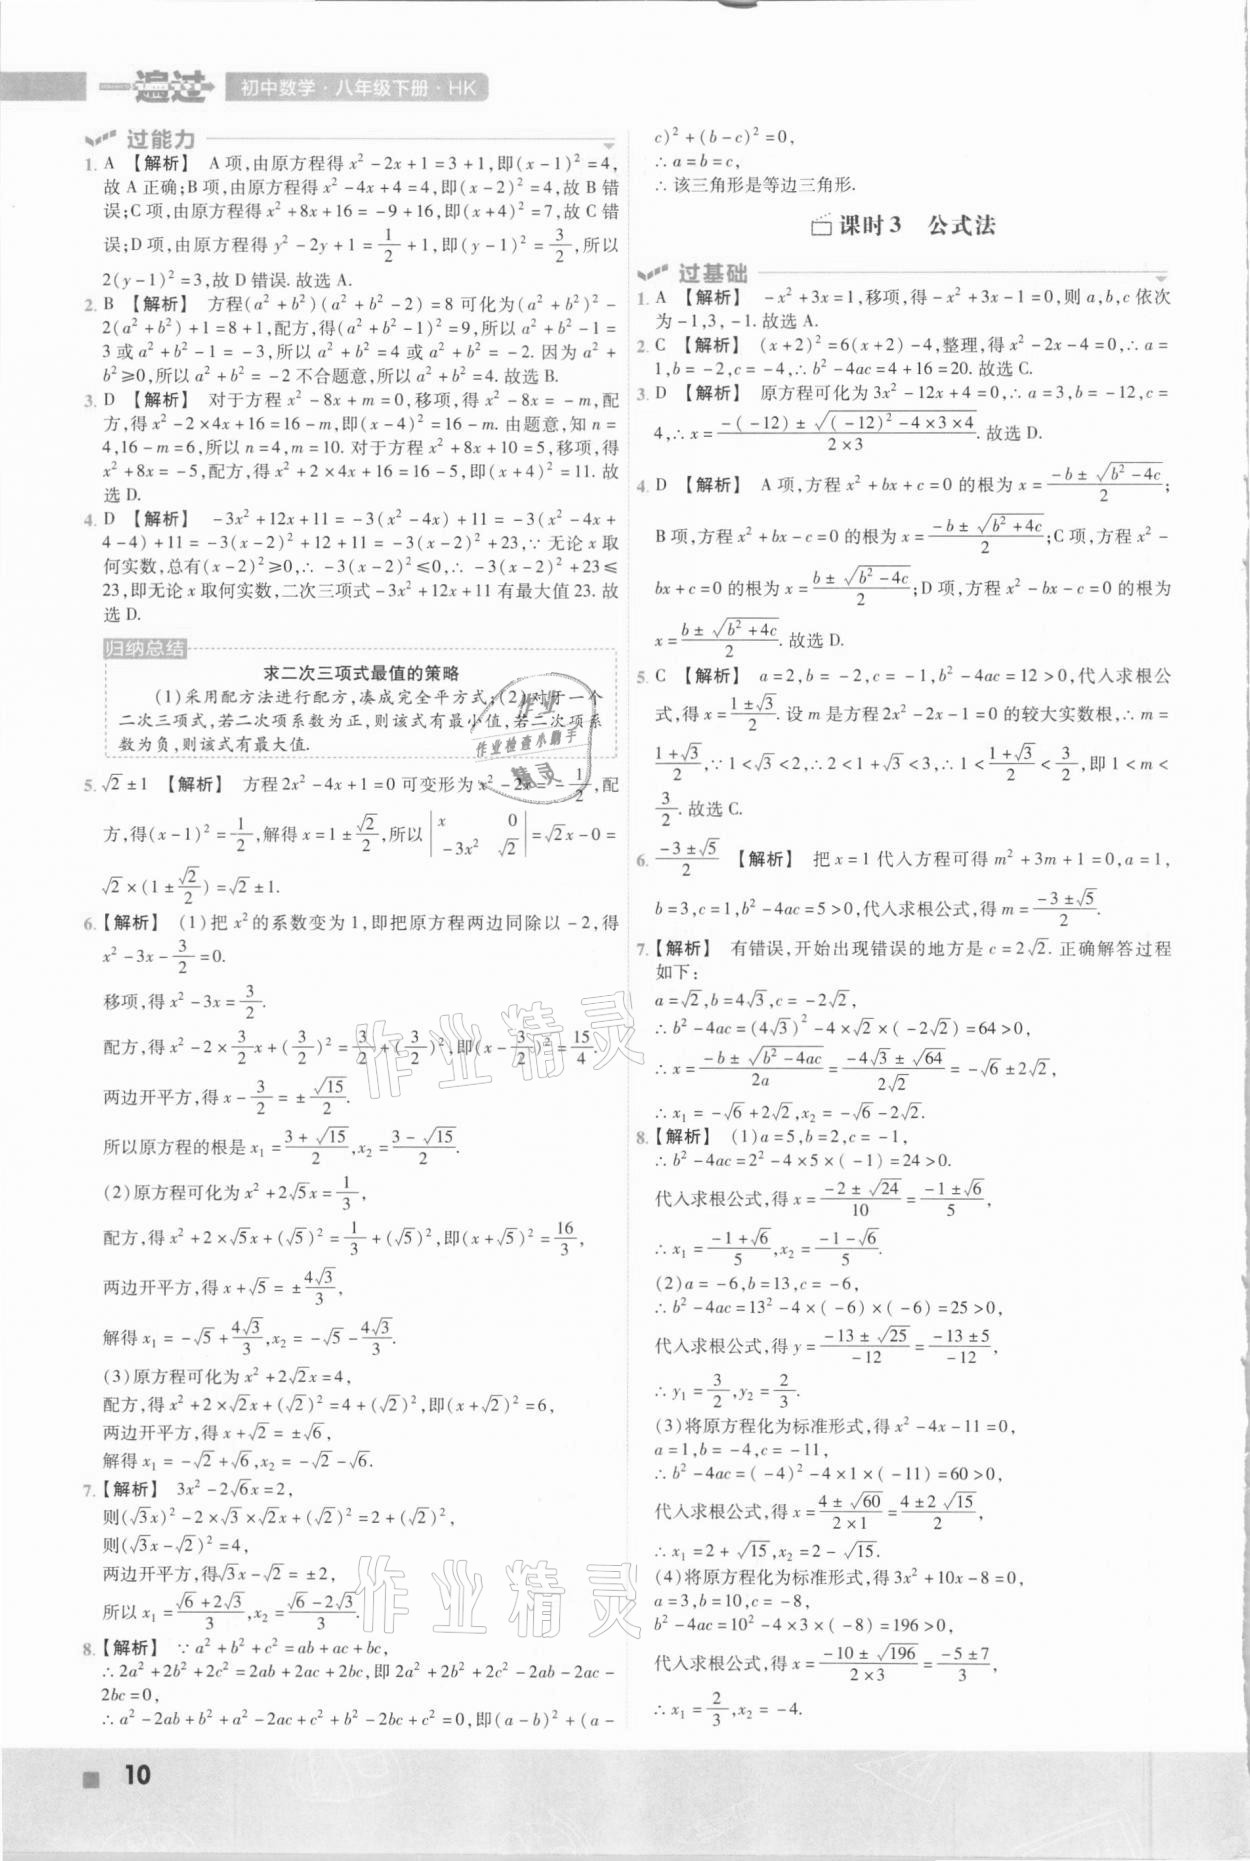 一遍过 初中数学·八年级下册·HK
过能力
1. A 【解析】 A 项,由原方程得 x²-2x+1=3+1,即(x-1)²=4,
故 A 正确;B 项,由原方程得 x²-4x+4=4,即(x-2)²=4,故 B 错
误;C 项,由原方程得 x²+8x+16=-9+16,即(x+4)²=7,故 C 错
误;D 项,由原方程得 y²-2y+1=1/2+1,即(y-1)²=3/2,所以
2(y-1)²=3,故 D 错误. 故选 A.
2. B 【解析】 方程(a²+b²)(a²+b²-2)=8 可化为(a²+b²)²-
2(a²+b²)+1=8+1,配方,得(a²+b²-1)²=9,所以 a²+b²-1=
3 或 a²+b²-1=-3,所以 a²+b²=4 或 a²+b²=-2. 因为 a²+
b²≥0,所以 a²+b²=-2 不合题意,所以 a²+b²=4. 故选 B.
3. D 【解析】 对于方程 x²-8x+m=0,移项,得 x²-8x=-m,配
方,得 x²-2×4x+16=16-m,即(x-4)²=16-m. 由题意,知 n=
4,16-m=6,所以 n=4,m=10. 对于方程 x²+8x+10=5,移项,得
x²+8x=-5,配方,得 x²+2×4x+16=16-5,即(x+4)²=11. 故
选 D.
4. D 【解析】 -3x²+12x+11=-3(x²-4x)+11=-3(x²-4x+
4-4)+11=-3(x-2)²+12+11=-3(x-2)²+23,∵ 无论 x 取
何实数,总有(x-2)²≥0,∴ -3(x-2)²≤0,∴ -3(x-2)²+23≤
23,即无论 x 取何实数,二次三项式-3x²+12x+11 有最大值 23. 故
选 D.
归纳总结
求二次三项式最值的策略
(1)采用配方法进行配方,凑成完全平方式;(2)对于一个
二次三项式,若二次项系数为正,则该式有最小值,若二次项系
数为负,则该式有最大值.
5. √2±1 【解析】 方程 2x²-4x+1=0 可变形为 x²-2x=-1/2,配
方,得(x-1)²=1/2,解得 x=1±√2/2,所以 |x 0; -3x² √2|=√2x-0=
√2×(1±√2/2)=√2±1.
6.【解析】 (1)把 x²的系数变为 1,即把原方程两边同除以-2,得
x²-3x-3/2=0.
移项,得 x²-3x=3/2.
配方,得 x²-2×3/2x+(3/2)²=3/2+(3/2)²,即(x-3/2)²=15/4.
两边开平方,得 x-3/2=±√15/2.
所以原方程的根是 x₁=(3+√15)/2,x₂=(3-√15)/2.
(2)原方程可化为 x²+2√5x=1/3,
配方,得 x²+2×√5x+(√5)²=1/3+(√5)²,即(x+√5)²=16/3,
两边开平方,得 x+√5=±4√3/3,
解得 x₁=-√5+4√3/3,x₂=-√5-4√3/3.
(3)原方程可化为 x²+2√2x=4,
配方,得 x²+2×√2x+(√2)²=4+(√2)²,即(x+√2)²=6,
两边开平方,得 x+√2=±√6,
解得 x₁=-√2+√6,x₂=-√2-√6.
7.【解析】 3x²-2√6x=2,
则(√3x)²-2×√3×√2x+(√2)²=2+(√2)²,
则(√3x-√2)²=4,
两边开平方,得√3x-√2=±2,
所以 x₁=(√6+2√3)/3,x₂=(√6-2√3)/3.
8.【解析】 ∵ a²+b²+c²=ab+ac+bc,
∴ 2a²+2b²+2c²=2ab+2ac+2bc,即 2a²+2b²+2c²-2ab-2ac-
2bc=0,
∴ a²-2ab+b²+a²-2ac+c²+b²-2bc+c²=0,即(a-b)²+(a-
c)²+(b-c)²=0,
∴ a=b=c,
∴ 该三角形是等边三角形.
课时3 公式法
过基础
1. A 【解析】 -x²+3x=1,移项,得-x²+3x-1=0,则 a,b,c 依次
为-1,3,-1. 故选 A.
2. C 【解析】 (x+2)²=6(x+2)-4,整理,得 x²-2x-4=0,∴ a=
1,b=-2,c=-4,∴ b²-4ac=4+16=20. 故选 C.
3. D 【解析】 原方程可化为 3x²-12x+4=0,∴ a=3,b=-12,c=
4,∴ x=(-(-12)±√((-12)²-4×3×4))/(2×3). 故选 D.
4. D 【解析】 A 项,方程 x²+bx+c=0 的根为 x=(-b±√(b²-4c))/2;
B 项,方程 x²+bx-c=0 的根为 x=(-b±√(b²+4c))/2;C 项,方程 x²-
bx+c=0 的根为 x=(b±√(b²-4c))/2;D 项,方程 x²-bx-c=0 的根为
x=(b±√(b²+4c))/2. 故选 D.
5. C 【解析】 a=2,b=-2,c=-1,b²-4ac=12>0,代入求根公
式,得 x=(1±√3)/2. 设 m 是方程 2x²-2x-1=0 的较大实数根,∴ m=
(1+√3)/2,∵ 1<√3<2,∴ 2<1+√3<3,∴ 1<(1+√3)/2<3/2,即 1<m<
3/2. 故选 C.
6. (-3±√5)/2 【解析】 把 x=1 代入方程可得 m²+3m+1=0,a=1,
b=3,c=1,b²-4ac=5>0,代入求根公式,得 m=(-3±√5)/2.
7.【解析】 有错误,开始出现错误的地方是 c=2√2. 正确解答过程
如下:
a=√2,b=4√3,c=-2√2,
∴ b²-4ac=(4√3)²-4×√2×(-2√2)=64>0,
∴ x=(-b±√(b²-4ac))/2a=(-4√3±√64)/2√2=-√6±2√2,
∴ x₁=-√6+2√2,x₂=-√6-2√2.
8.【解析】 (1)a=5,b=2,c=-1,
∴ b²-4ac=2²-4×5×(-1)=24>0.
代入求根公式,得 x=(-2±√24)/10=(-1±√6)/5,
∴ x₁=(-1+√6)/5,x₂=(-1-√6)/5.
(2)a=-6,b=13,c=-6,
∴ b²-4ac=13²-4×(-6)×(-6)=25>0,
代入求根公式,得 y=(-13±√25)/-12=(-13±5)/-12,
∴ y₁=3/2,y₂=2/3.
(3)将原方程化为标准形式,得 x²-4x-11=0,
a=1,b=-4,c=-11,
∴ b²-4ac=(-4)²-4×1×(-11)=60>0,
代入求根公式,得 x=(4±√60)/(2×1)=(4±2√15)/2,
∴ x₁=2+√15,x₂=2-√15.
(4)将原方程化为标准形式,得 3x²+10x-8=0,
a=3,b=10,c=-8,
b²-4ac=10²-4×3×(-8)=196>0,
代入求根公式,得 x=(-10±√196)/(2×3)=(-5±7)/3,
∴ x₁=2/3,x₂=-4.
作业
作业检查小助手
精灵
作业精灵
作业精灵
10